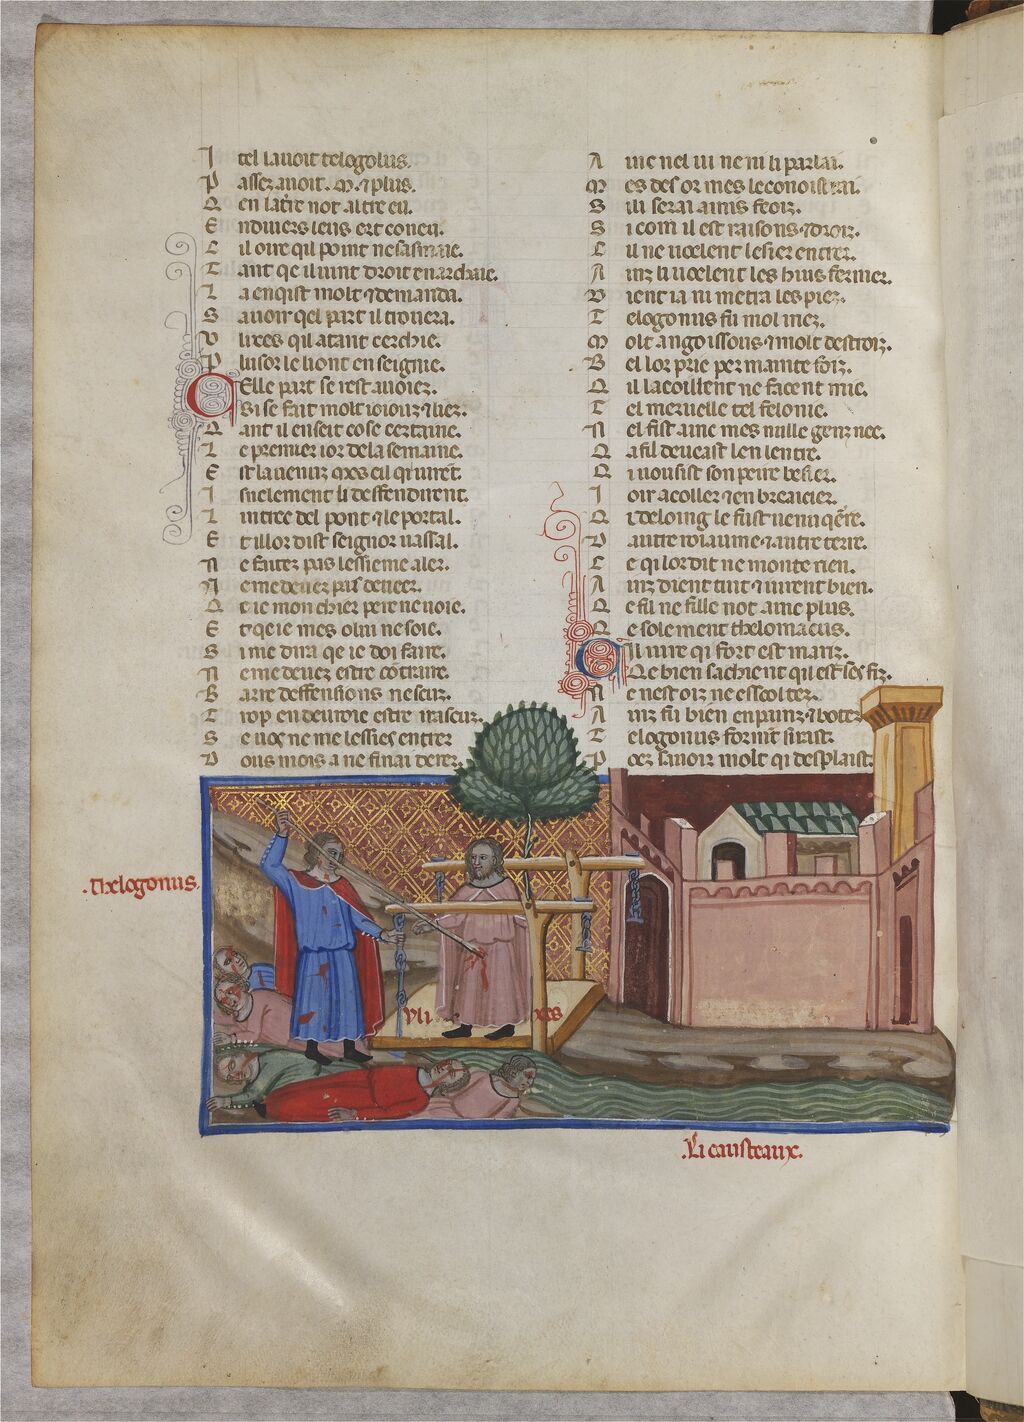 I tel lauoit telogolus.
P assez auoit. M. 7 plus.
Q en latire not altre eu.
E ndiuers leus ert coneu.
C il oirre qil point ne sasmaie.
T ant qe il uint droit en archaie.
L a enqist molt 7 demanda.
S auoir qel part il trouera.
V lixes qil a tant cerchie.
P lusor le liont enseignie.
Celle part se rest auoiez.
Si se fait molt ioiouz 7 liez.
Q ant il enseit cose certaine.
L e premier ior de la semaine.
E st la uenuz
I snelement li deffendirent.
L intree del pont 7 le portal.
E t il lor dist seignor uassal.
N e faitez pas lessieme aler.
N e me deuez pas deueer.
Q e ie mon chier pere ne uoie.
E t qe ie mes o lui ne soie.
S i me dira qe ie doi faire.
N e me deuez estre contraire.
B arre deffensions ne seuz.
T rop en deuroie estre irascuz.
S e uos ne me lessiez entrer
V ous mois a ne finai derer.
A uie nel ui ne ni li parlai.
M es des or mes le conoistrai.
S ili serai
S i com il est raisons 7 droiz.
C il ne uoelent lesier entrer.
A inz li uoelent les huis fermer.
V ient ia ni metra les piez.
T elogonus fu mol inez.
M olt angoissous 7 molt destroiz.
B el lor prie per mainte foiz.
Q il lacoillent ne facent mie.
T el meruelle tel felonie.
N el fist ainc mes nulle genz nee.
Q a fil deueast len lentree.
Q i uousist son peire beisier.
I oir acoller 7 enbracier.
Q i de loing le fust uenu qere.
D autre roiaume 7 autre terre.
C e qi lor dit ne monte rien.
A inz dient tuit 7 iurent bien.
Q e fil ne fille not ainc plus.
Q e solement thelomacus.
Cil iure qi fort est mariz.
Qe bien sachient qil est ses fiz.
N e nest oiz ne escoltez.
A inz fu bien enpainz 7 botez
T elogonus forment sirast
P oez sauoir molt qi desplaist
.Thelogonus.
Vli xes
.Li causteaux.